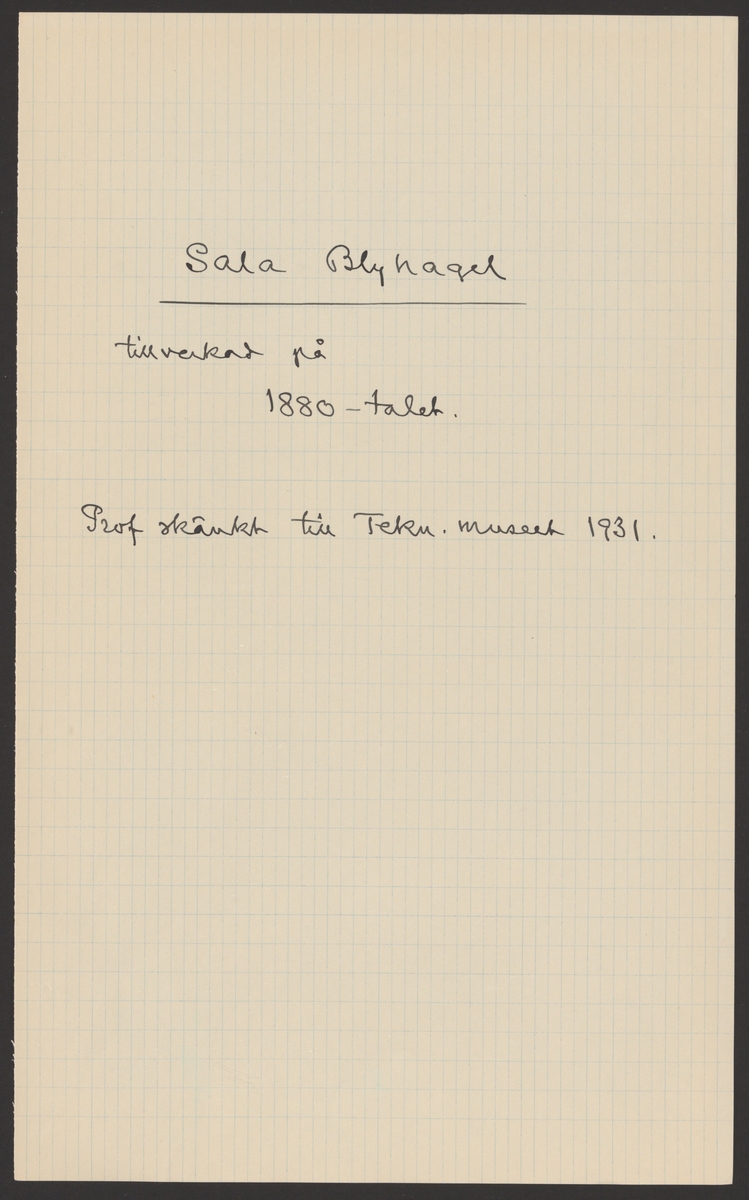 Sala Blyhagel
tillverkad på
1880-talet.
Prof skänkt till Tekn. museet 1931.